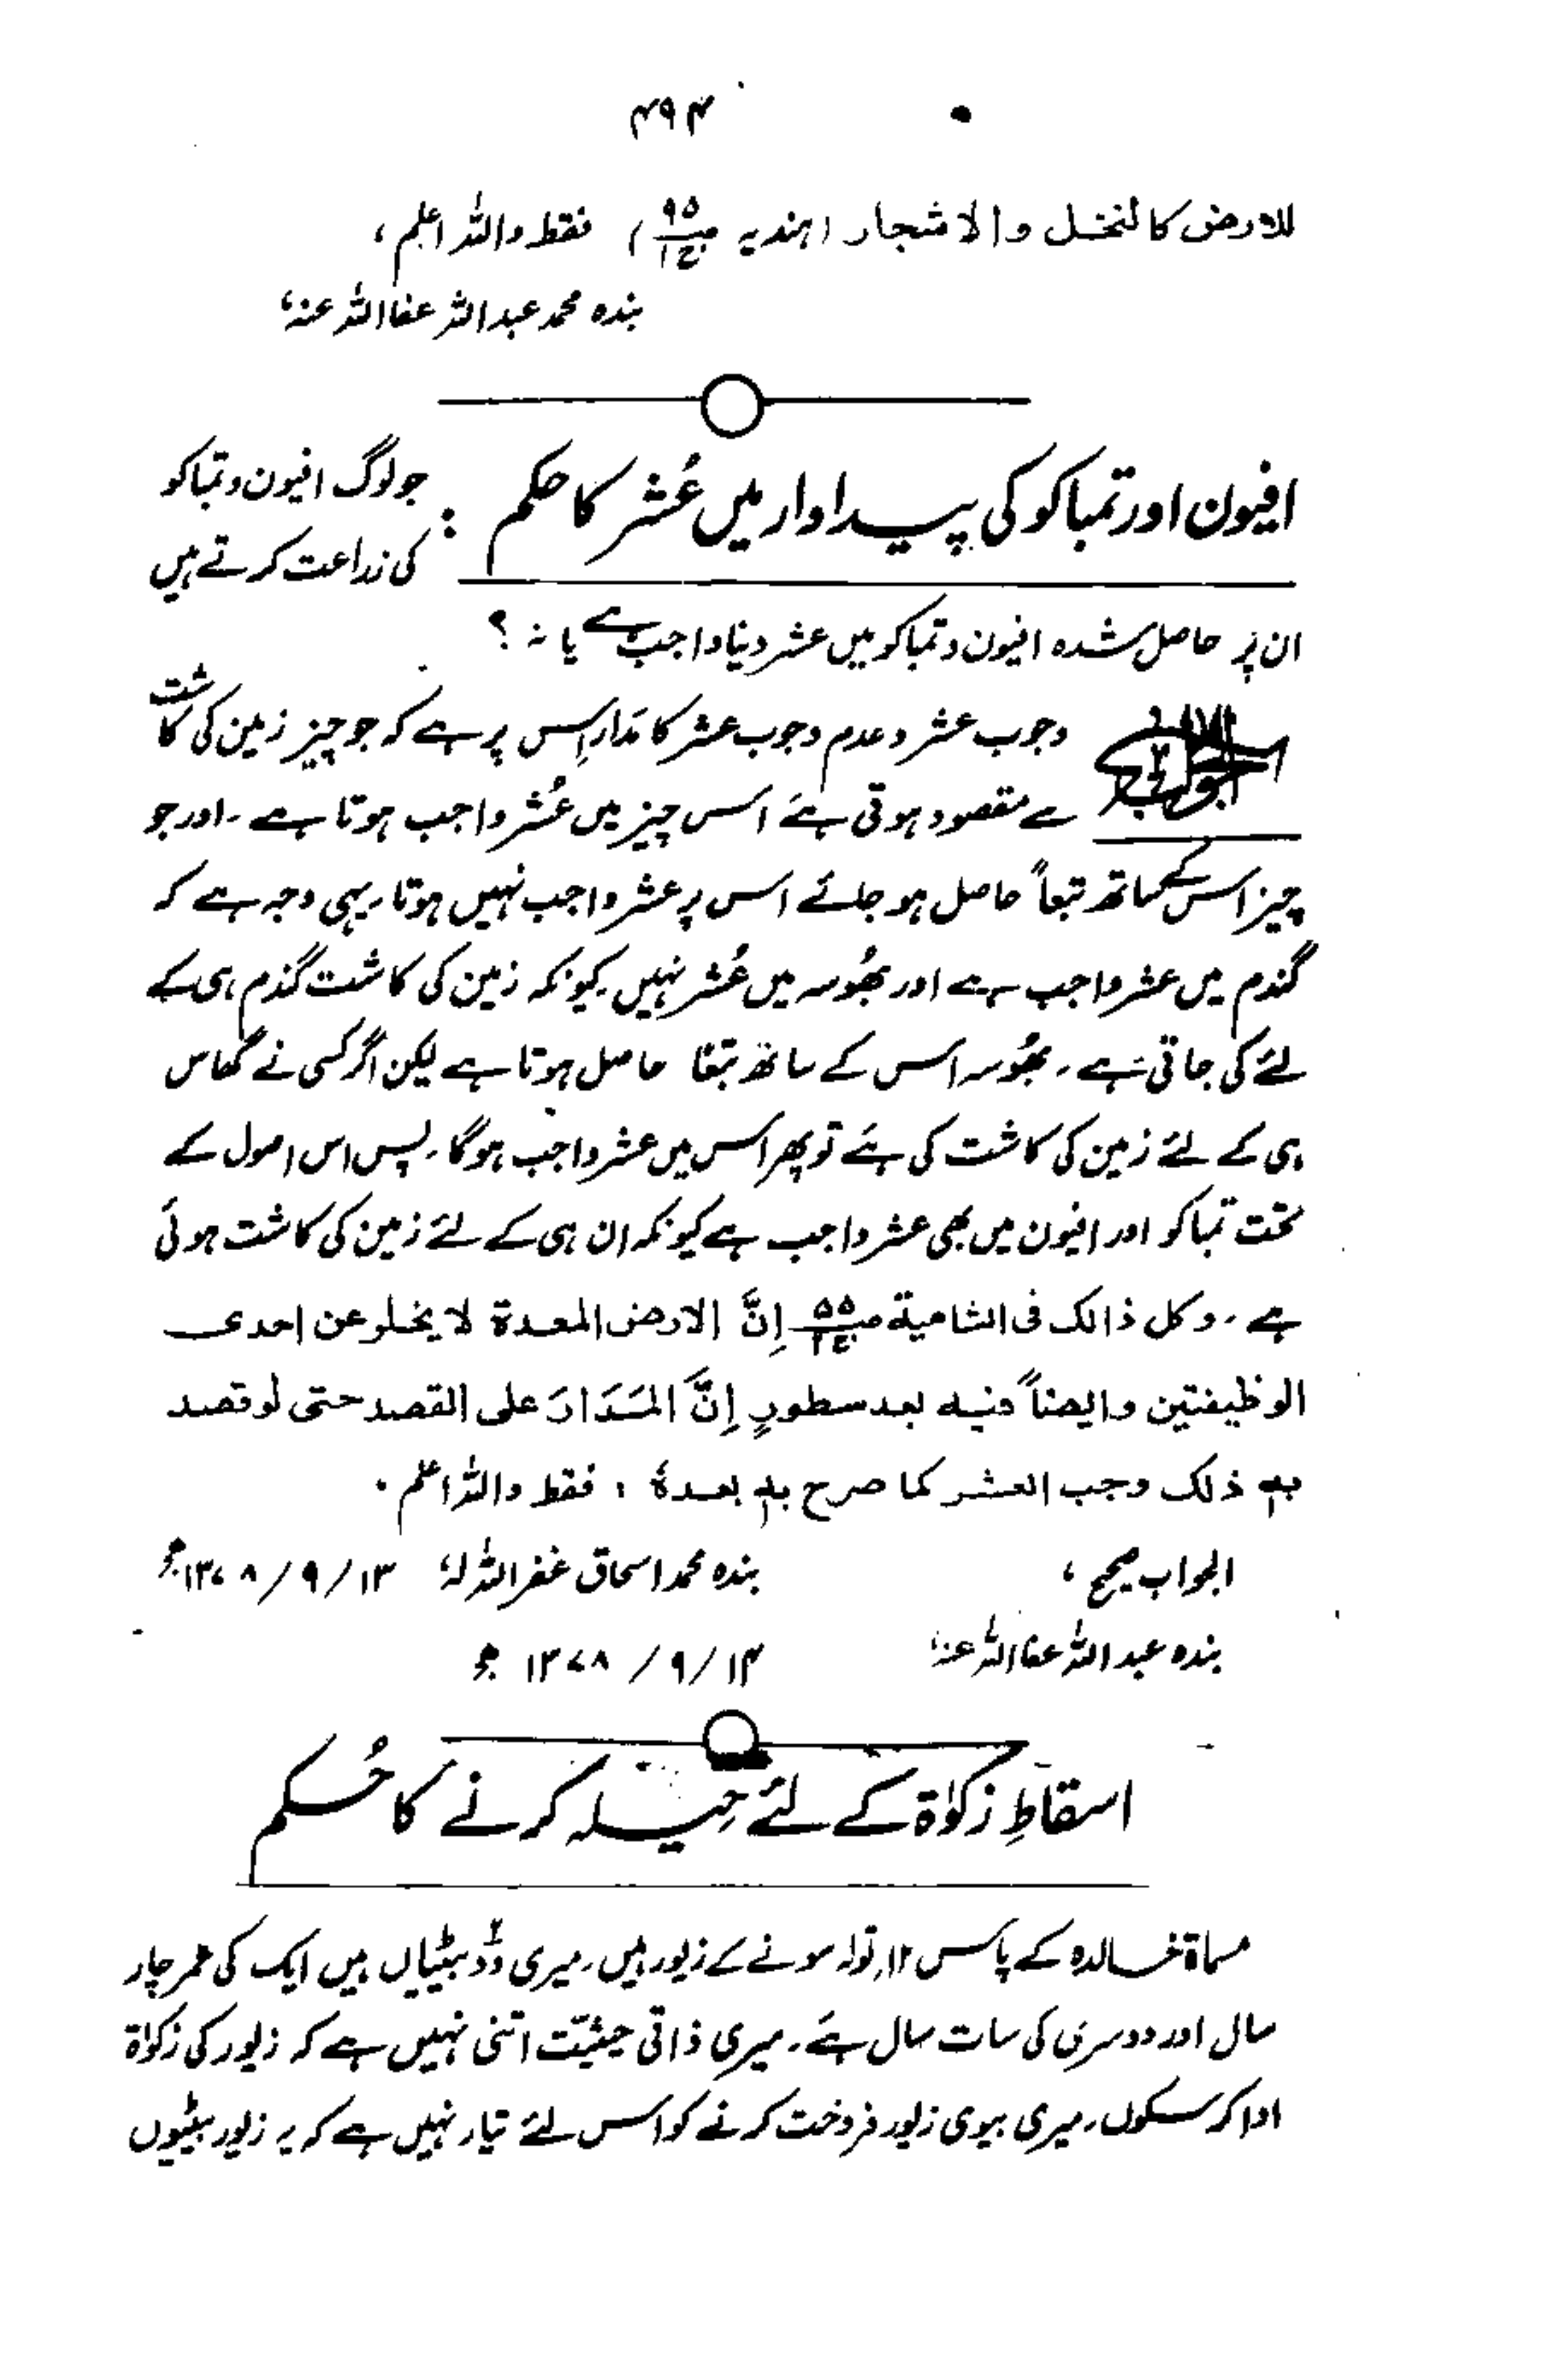 ۴۹۴
للارض كالنخل والاشجار (ہندیہ ص۹۵ ج۱) فقط واللہ اعلم،
بندہ محمد عبداللہ عفا اللہ عنہ،
افیون اور تمباکو کی پیداوار میں عُشر کا حکم : جو لوگ افیون و تمباکو
کی زراعت کرتے ہیں
ان پر حاصل شدہ افیون و تمباکو میں عشر دینا واجب ہے یا نہ ؟
الجواب وجوب عشر و عدم وجوب عشر کا مَدار اِس پر ہے کہ جو چیز زمین کی کاشت
سے مقصود ہوتی ہے اس چیز میں عُشر واجب ہوتا ہے ۔ اور جو
چیز اس کے ساتھ تبعاً حاصل ہو جائے اس پر عشر واجب نہیں ہوتا ۔ یہی وجہ ہے کہ
گندم میں عشر واجب ہے اور بھُوسہ میں عُشر نہیں ۔ کیونکہ زمین کی کاشت گندم ہی کے
لئے کی جاتی ہے ۔ بھُوسہ اس کے ساتھ تبعًا حاصل ہوتا ہے لیکن اگر کسی نے گھاس
ہی کے لئے زمین کی کاشت کی ہے تو پھر اس میں عشر واجب ہوگا ۔ پس اس اصول کے
تحت تمباکو اور افیون میں بھی عشر واجب ہے کیونکہ ان ہی کے لئے زمین کی کاشت ہوئی
ہے ۔ وكل ذالك فى الشامية ص۵۵ ج۲ اِنَّ الارض المعدة لا يخلو عن احدى
الوظيفتين وايضاً فيه بعد سطورٍ اِنَّ المَدَارَ على القصد حتى لو قصد
بهٖ ذلك وجب العشر كما صرح بهٖ بعدهٗ ، فقط واللہ اعلم ۔
الجواب صحیح ، بندہ محمد اسحاق غفر اللہ لہٗ ۱۳/۹/۱۳۷۸ھ
بندہ عبداللہ عفا اللہ عنہ، ۱۴/۹/۱۳۷۸ھ
اسقاطِ زکوٰۃ کے لئے حِیلہ کرنے کا حُکم
مسماۃ خالدہ کے پاس ۱۲ تولہ سونے کے زیور ہیں ۔ میری دو بیٹیاں ہیں ایک کی عمر چار
سال اور دوسری کی سات سال ہے ۔ میری ذاتی حیثیّت اتنی نہیں ہے کہ زیور کی زکوٰۃ
ادا کر سکوں ۔ میری بیوی زیور فروخت کرنے کو اس لئے تیار نہیں ہے کہ یہ زیور بیٹیوں